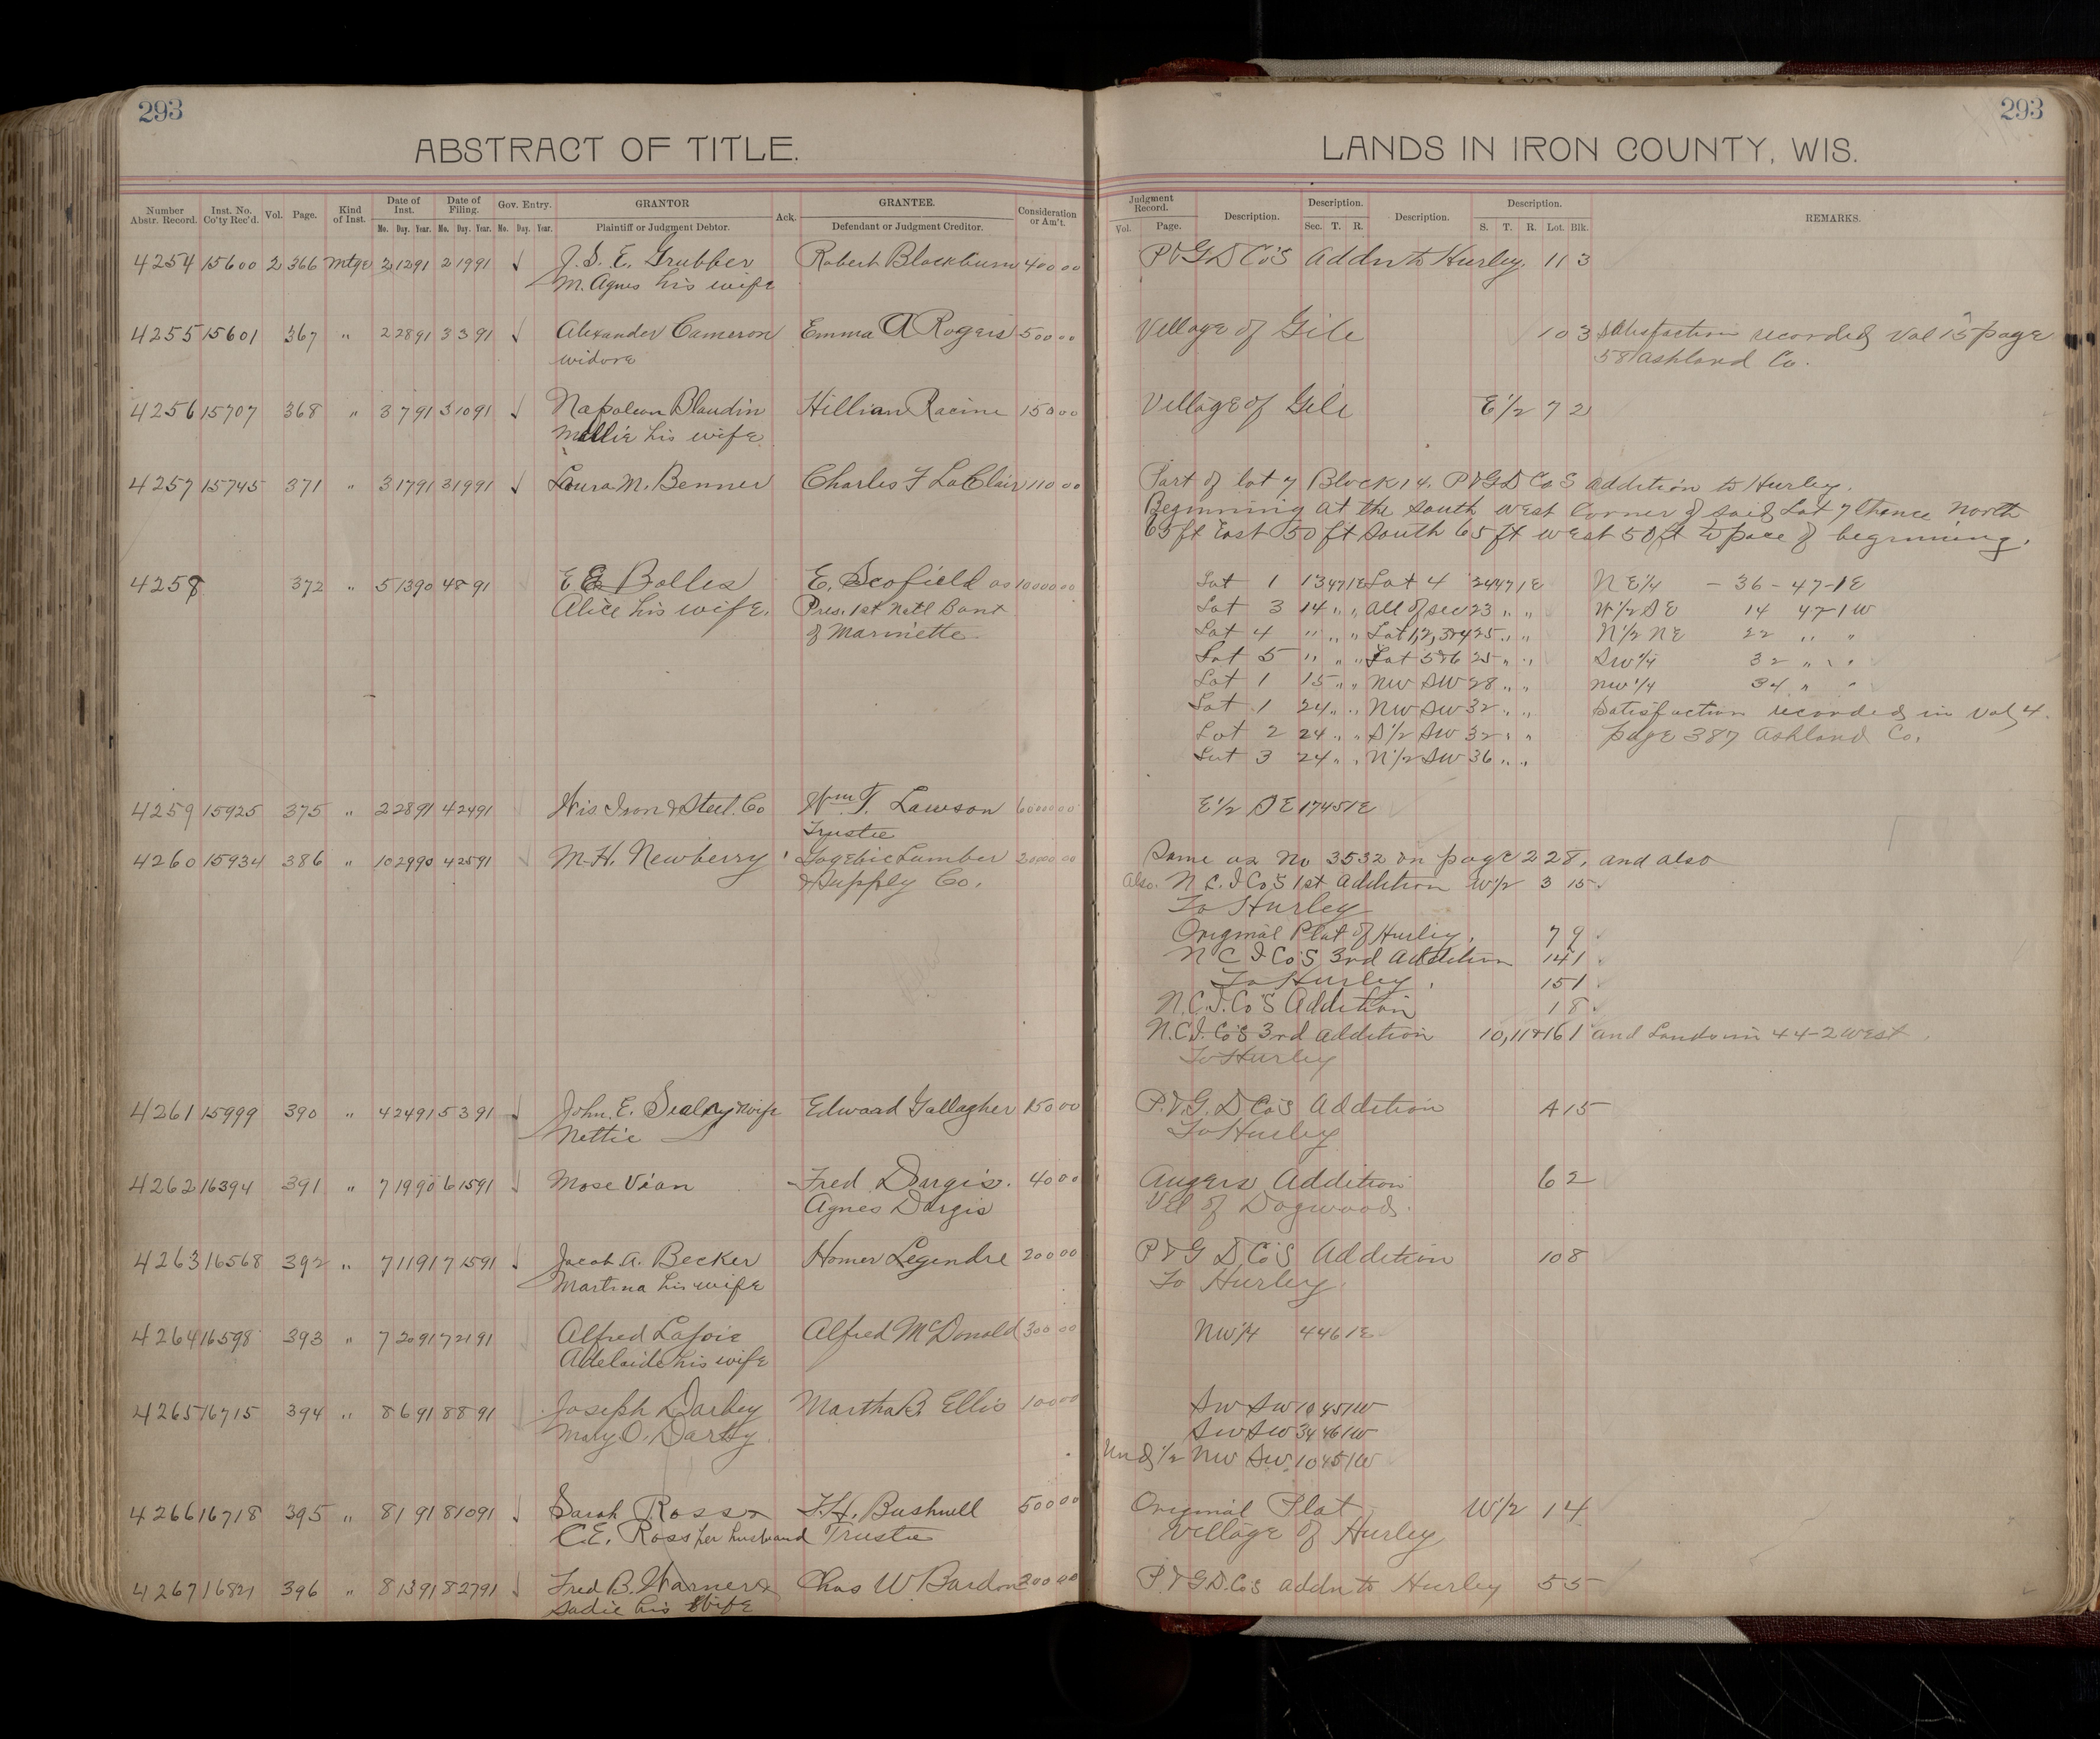 293
ABSTRACT OF TITLE.
Number Abstr. Record. Inst. No. Co'ty Rec'd. Vol. Page. Kind of Inst. Date of Inst. Date of Filing. Gov. Entry. GRANTOR Ack. GRANTEE. Consideration or Am't.
Mo. Day. Year. Mo. Day. Year. Mo. Day. Year. Plaintiff or Judgment Debtor. Defendant or Judgment Creditor.
4254 15600 2 366 Mtge 2 12 91 2 19 91 J. S. E. Grubber Robert Blackburn 400 00
M. Agnes his wife
4255 15601 367 " 2 28 91 3 3 91 Alexander Cameron Emma A Rogers 500 00
widore
4256 15707 368 " 3 7 91 3 10 91 Napoleon Blaudin Hillian Racine 150 00
Mellie his wife
4257 15745 371 " 3 17 91 3 19 91 Laura M. Benner Charles F LaClair 110 00
4258 372 " 5 13 90 4 8 91 E E Bolles E. Scofield as 10000 00
Alice his wife. Pres. 1st Natl Bank
of Marinette
4259 15925 375 " 2 28 91 4 24 91 Wis. Iron & Steel. Co Wm T. Lawson 60000 00
Trustee
4260 15934 386 " 10 29 90 4 25 91 M. H. Newberry Gogebic Lumber 20000 00
& Supply Co.
4261 15999 390 " 4 24 91 5 3 91 John. E. Sealny & wife Edward Gallagher 150 00
Nettie
4262 16394 391 " 7 19 90 6 15 91 Mose Vian Fred Dargis. 40 00
Agnes Dargis
4263 16568 392 " 7 11 91 7 15 91 Jacob A. Becker Homer Legendre 200 00
Martina his wife
4264 16598 393 " 7 20 91 7 21 91 Alfred Lafoie Alfred McDonald 300 00
Adelaide his wife
4265 16715 394 " 8 6 91 8 8 91 Joseph Darbey Martha B. Ellis 100 00
Mary O. Darby
4266 16718 395 " 8 1 91 8 10 91 Sarah Ross & F. H. Bushnell 500 00
C. E. Ross her husband Trustee
4267 16821 396 " 8 13 91 8 27 91 Fred B. Warner & Chas W Bardon 200 00
Sadie his wife
293
LANDS IN IRON COUNTY, WIS.
Judgment Record. Description. Description. Description. Description. REMARKS.
Vol. Page. Sec. T. R. S. T. R. Lot. Blk.
P & G D Co's Addn to Hurley. 11 3
Village of Gile 10 3 Satisfaction recorded Vol 15 page
58 Ashland Co.
Village of Gile E 1/2 7 2
Part of lot 7 Block 14. P & G D Co S addition to Hurley.
Beginning at the south west Corner of said Lot 7 thence North
65 ft East 50 ft South 65 ft west 50 ft to pace of beginning.
Lot 1 13 47 1E Lot 4 24 47 1E NE 1/4 - 36 - 47 - 1E
Lot 3 14 " " all of sec 23 " " N 1/2 SE 14 47-1W
Lot 4 " " " Lot 1,2,3&4 25 " " N 1/2 NE 22 " "
Lot 5 " " " Lot 5&6 25 " " SW 1/4 32 " "
Lot 1 15 " " NW SW 28 " " NW 1/4 34 " "
Lot 1 24 " " NW SW 32 " " Satisfaction recorded in Vol, 4.
Lot 2 24 " " S 1/2 SW 32 " " page 387 Ashland Co.
Lot 3 24 " " N 1/2 SW 36 " "
E 1/2 SE 17 45 1E
Same as No 3532 on page 228. and also
Also. N C. I Co's 1st Addition W 1/2 3 15
To Hurley
Original Plat of Hurley. 7 9
N C I Co's 3rd Addition 14 1
To Hurley. 15 1
N. C. I. Co's Addition 1 8
N. C. I. Co's 3rd Addition 10, 11 & 16 1 and Lands in 44-2 West
To Hurley
P. & G. D Co's Addition A 15
To Hurley
Augers Addition 6 2
Vil of Dogwood.
P & G D Co's Addition 10 8
To Hurley.
NW 1/4 4 46 1E
SW SW 10 45 1W
SW SW 34 46 1W
Und 1/2 NW SW 10 45 1W
Original Plat W 1/2 1 4
Village of Hurley
P. & G D. Co's addn to Hurley 5 5